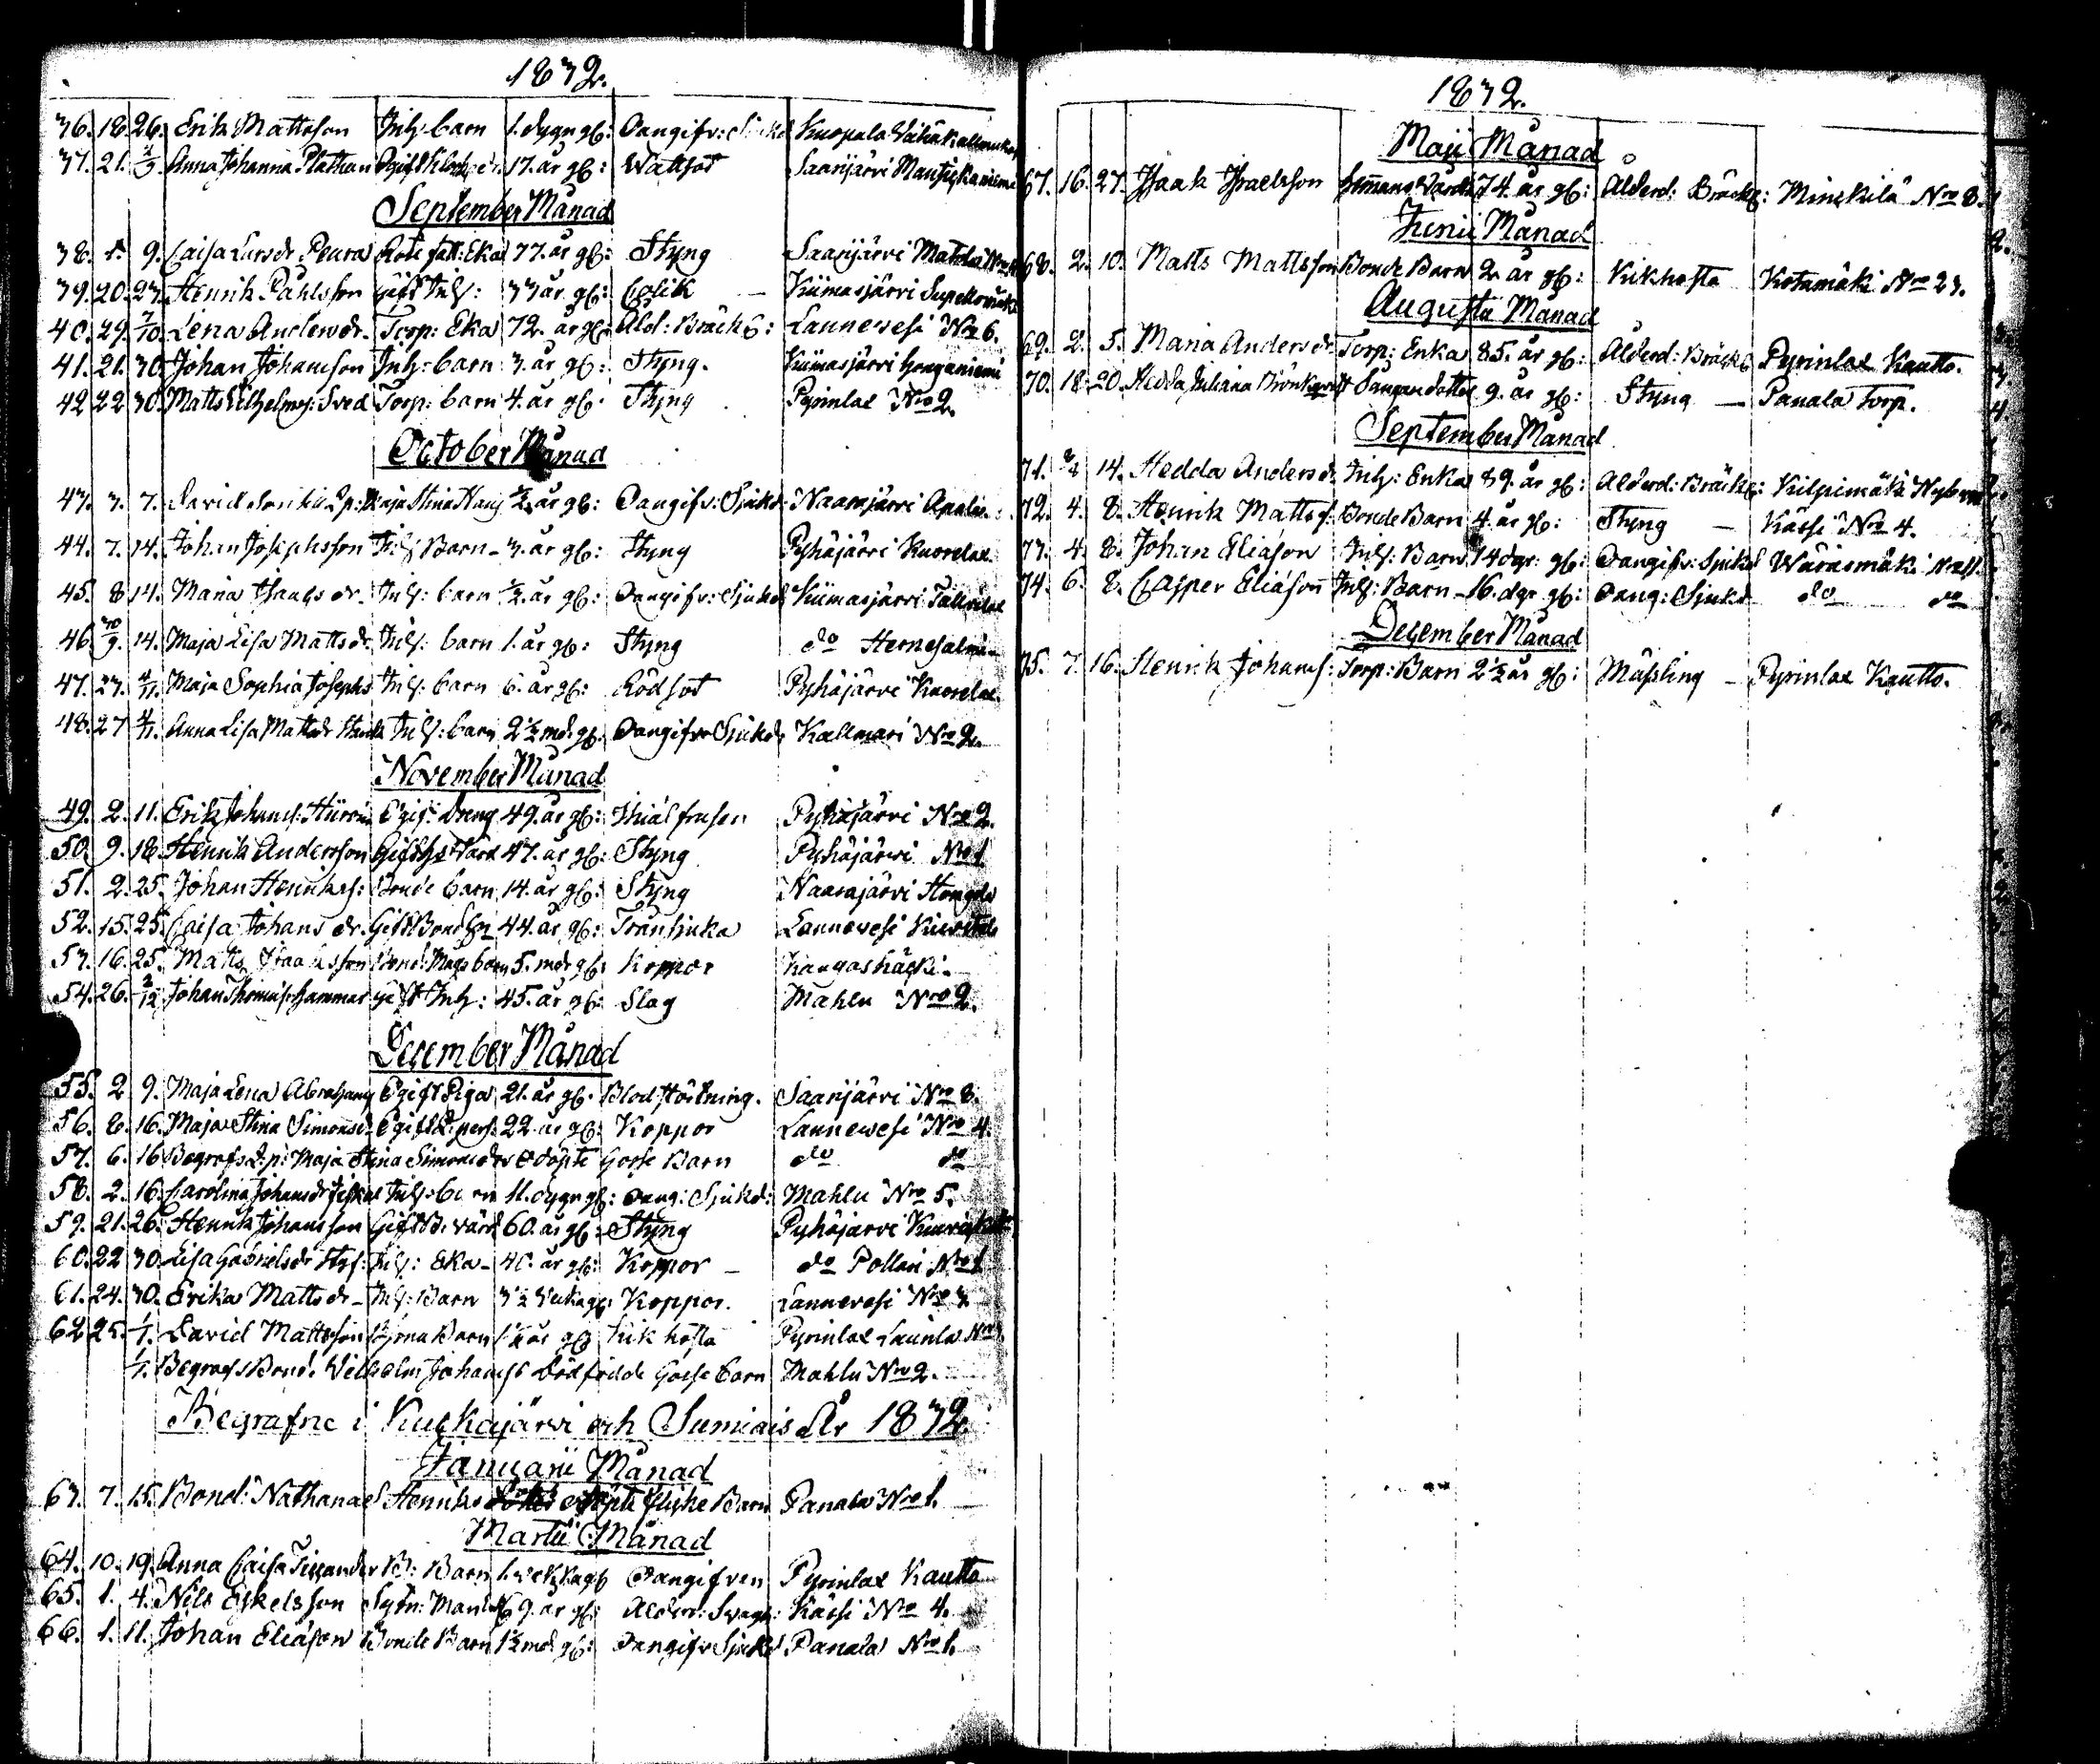 1832.
36. 18. 26. Erik Mattsson Inh: barn 1. dygn gl: Oangifv: Sjukd Kuopala Vähäkallmukoski
37. 21. 2/9. Anna Johanna Plathan 17. år gl: Wattsot Saarijärvi
September Månad
38. 1. 9. Caisa Larsdr Peura Rote fatt: Eka 77. år gl: Styng Saarijärvi Mahlu
39. 20. 23. Henrik Påhlsson Gift Inh: 33 år gl: Colik — Kiimasjärvi
40. 29. 7/10. Lena Andersdr. Torp: Eka 72. år gl: Åld: Bräckl: Lannevesi No 6.
41. 21. 30. Johan Johansson Inh: barn 3. år gl: Styng. Kiimasjärvi Honganiemi
42 22 30. Matts Wilhelmss: Sved Torp: barn 4. år gl: Styng Pyrinlax No 2.
October Månad
43. 3. 7. David Lp: Maja Stina Hans ½ år gl: Oangifv: Sjukd. Naarajärvi
44. 7. 14. Johan Josephsson Inh: Barn - 3. år gl: Styng Pyhäjärvi Kuorelax
45. 8 14. Maria Isaacs dr. Inh: barn ½. år gl: Oangifv: Sjukd Kiimasjärvi
46. 30/9. 14. Maja Lisa Mattsdr. Inh: barn 1. år gl: Styng do Hernesalmi
47. 23. 4/11. Maja Sophia Josephs Inh: barn 6. år gl: Rödsot Pyhäjärvi Kuorelax
48. 27 4/11. Anna Lisa Mattsdr Inh: barn 2½ md. gl. Oangifv Sjukd. Kallmari No 2.
November Månad
49. 2. 11. Erik Johanss: Ogif: Dräng 49. år gl: Ihiälfrusen Pyhäjärvi No 2.
50. 9. 18. Henrik Andersson Gift 47. år gl: Styng Pyhäjärvi No 1
51. 2. 25. Johan Henrikss: Bonde barn 14. år gl: Styng Naarajärvi
52. 15. 25. Caisa Johans dr. Gift Bond 44. år gl: Trånsjuka Lannevesi
53. 16. 25. Matts Isaaksson Bond: Mågs barn 5. mdr gl: Koppor Kangashäcki
54. 26. 2/12 Johan Thomas: Hammar Gift Inh: 45. år gl: Slag Mahlu No 2.
December Månad
55. 2 9. Maja Lena Abrahams Ogift Piga 21. år gl. Blodstörtning. Saarijärvi No 8.
56. 6. 16. Maja Stina Simonsd. Ogift L: pers. 22. år gl: Koppor Lannevesi No 4.
57. 6. 16 Begrofs L:p: Maja Stina Simonsdrs Odöpte Gosse Barn do do
58. 2. 16. Carolina Johansdr Inh: barn 11. dygn gl: Oang: Sjukd: Mahlu No 5.
59. 21. 26. Henrik Johansson Gift B: värd 60. år gl: Styng Pyhäjärvi
60. 22 30. Lisa Gabrielsdr Inh: Eka - år gl: Koppor — do Pollari No 1
61. 24. 30. Erika Mattsdr - Inh: Barn 3½ veka gl: Koppor. Lannevesi No 3.
62 25. 1/1. David Mattsson Barn 1½ år gl: Kikhosta Pyrinlax Launla No
1/1. Begrofs Bond: Wilhelm Johanss Dödfödde Gosse barn Mahlu No 2.
Begrafne i Kulkajärvi och Sumiais År 1832.
Januarii Månad
63. 7. 15. Bond: Nathanael Henriks odöpte Flicke Barn Panala No 1.
Martii Månad
64. 10. 19. Anna Caisa B: Barn 1. vecka gl Oangifven Pyrinlax Kautto
65. 1. 4. Nils Eskelsson Sytn: Man 69. år gl: Ålderd: Svagh: Kässi No 4.
66. 1. 11. Johan Eliasson Bonde Barn 1½ md gl: Oangifv Sjukd Panala No 1.
1832.
Maji Månad
67. 16. 27. Isaak Israelsson 74. år gl: Ålderd: Bräckl: Minckilä No 8.
Junii Månad
68. 2. 10. Matts Mattsson Bonde Barn 2. år gl: Kikhosta Kotamäki No 23.
Augusti Månad
69. 2. 5. Maria Andersdr Torp: Enka 85. år gl: Ålderd: Bräckl Pyrinlax Kautto.
70. 18. 20. Hedda Juliana Björkqvist dotter 9. år gl: Styng — Panala Torp.
September Månad
71. 14. Hedda Andersdr. Inh: Enka 89. år gl: Ålderd: Bräckl: Kilpimäki
72. 4. 8. Henrik Mattss: Bonde Barn 4. år gl: Styng — Kässi No 4.
73. 4. 8. Johan Eliasson Inh: Barn 14 dgr: gl: Oangifv: Sjukd
74. 6. 8. Casper Eliasson Inh: Barn - 16. dgr gl: Oang: Sjukd do do
December Månad
75. 7. 16. Henrik Johanss: Torp: Barn 2½ år gl: Mässling — Pyrinlax Kautto.